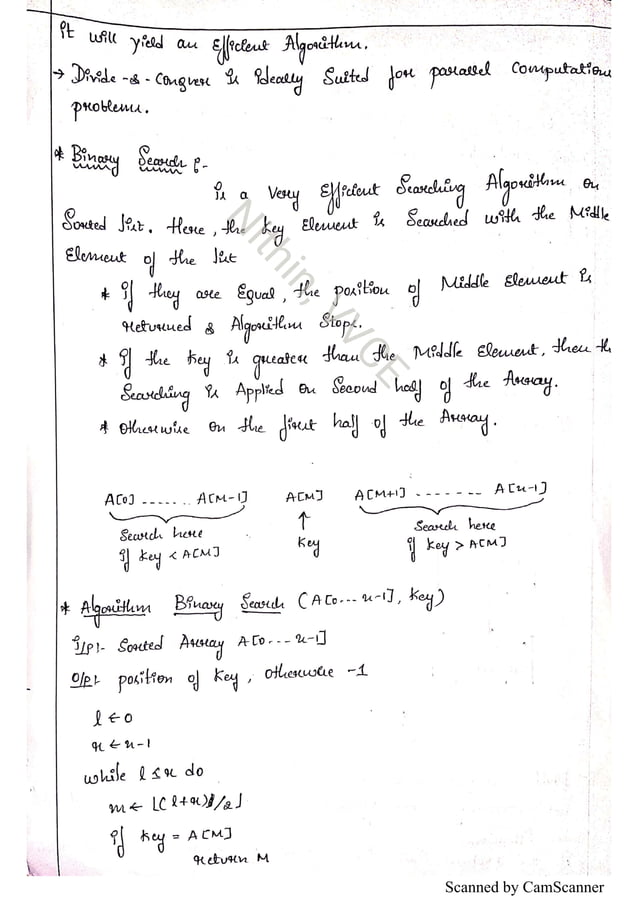 It will yield an Efficient Algorithm.
→ Divide-&-Conquer is Ideally Suited for parallel Computation
problems.
* Binary Search :-
Is a Very Efficient Searching Algorithm on
Sorted list. Here, the key Element is Searched with the Middle
Element of the list
* If they are Equal, the position of Middle Element is
returned & Algorithm Stops.
* If the key is greater than the Middle Element, then th
Searching is Applied on Second half of the Array.
* Otherwise on the first half of the Array.
A[0] ....... A[M-1] A[M] A[M+1] ....... A[n-1]
Search here ↑ Search here
if key < A[M] Key if key > A[M]
* Algorithm Binary Search (A[0...n-1], key)
I/p:- Sorted Array A[0...n-1]
O/p:- position of key, otherwise -1
l ← 0
r ← n-1
while l ≤ r do
m ← ⌊(l+r)/2⌋
if key = A[M]
return M
Nithin, VVCE
Scanned by CamScanner